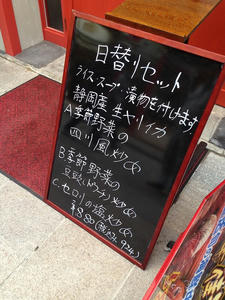 日替りセット
ライス.スープ.漬物も付けます
静岡産 生ヤリイカ
A.季節野菜の
四川風炒め
B季節野菜の
豆豉(トウーチ)炒め
C.セロリの塩炒め
¥880(税込924)